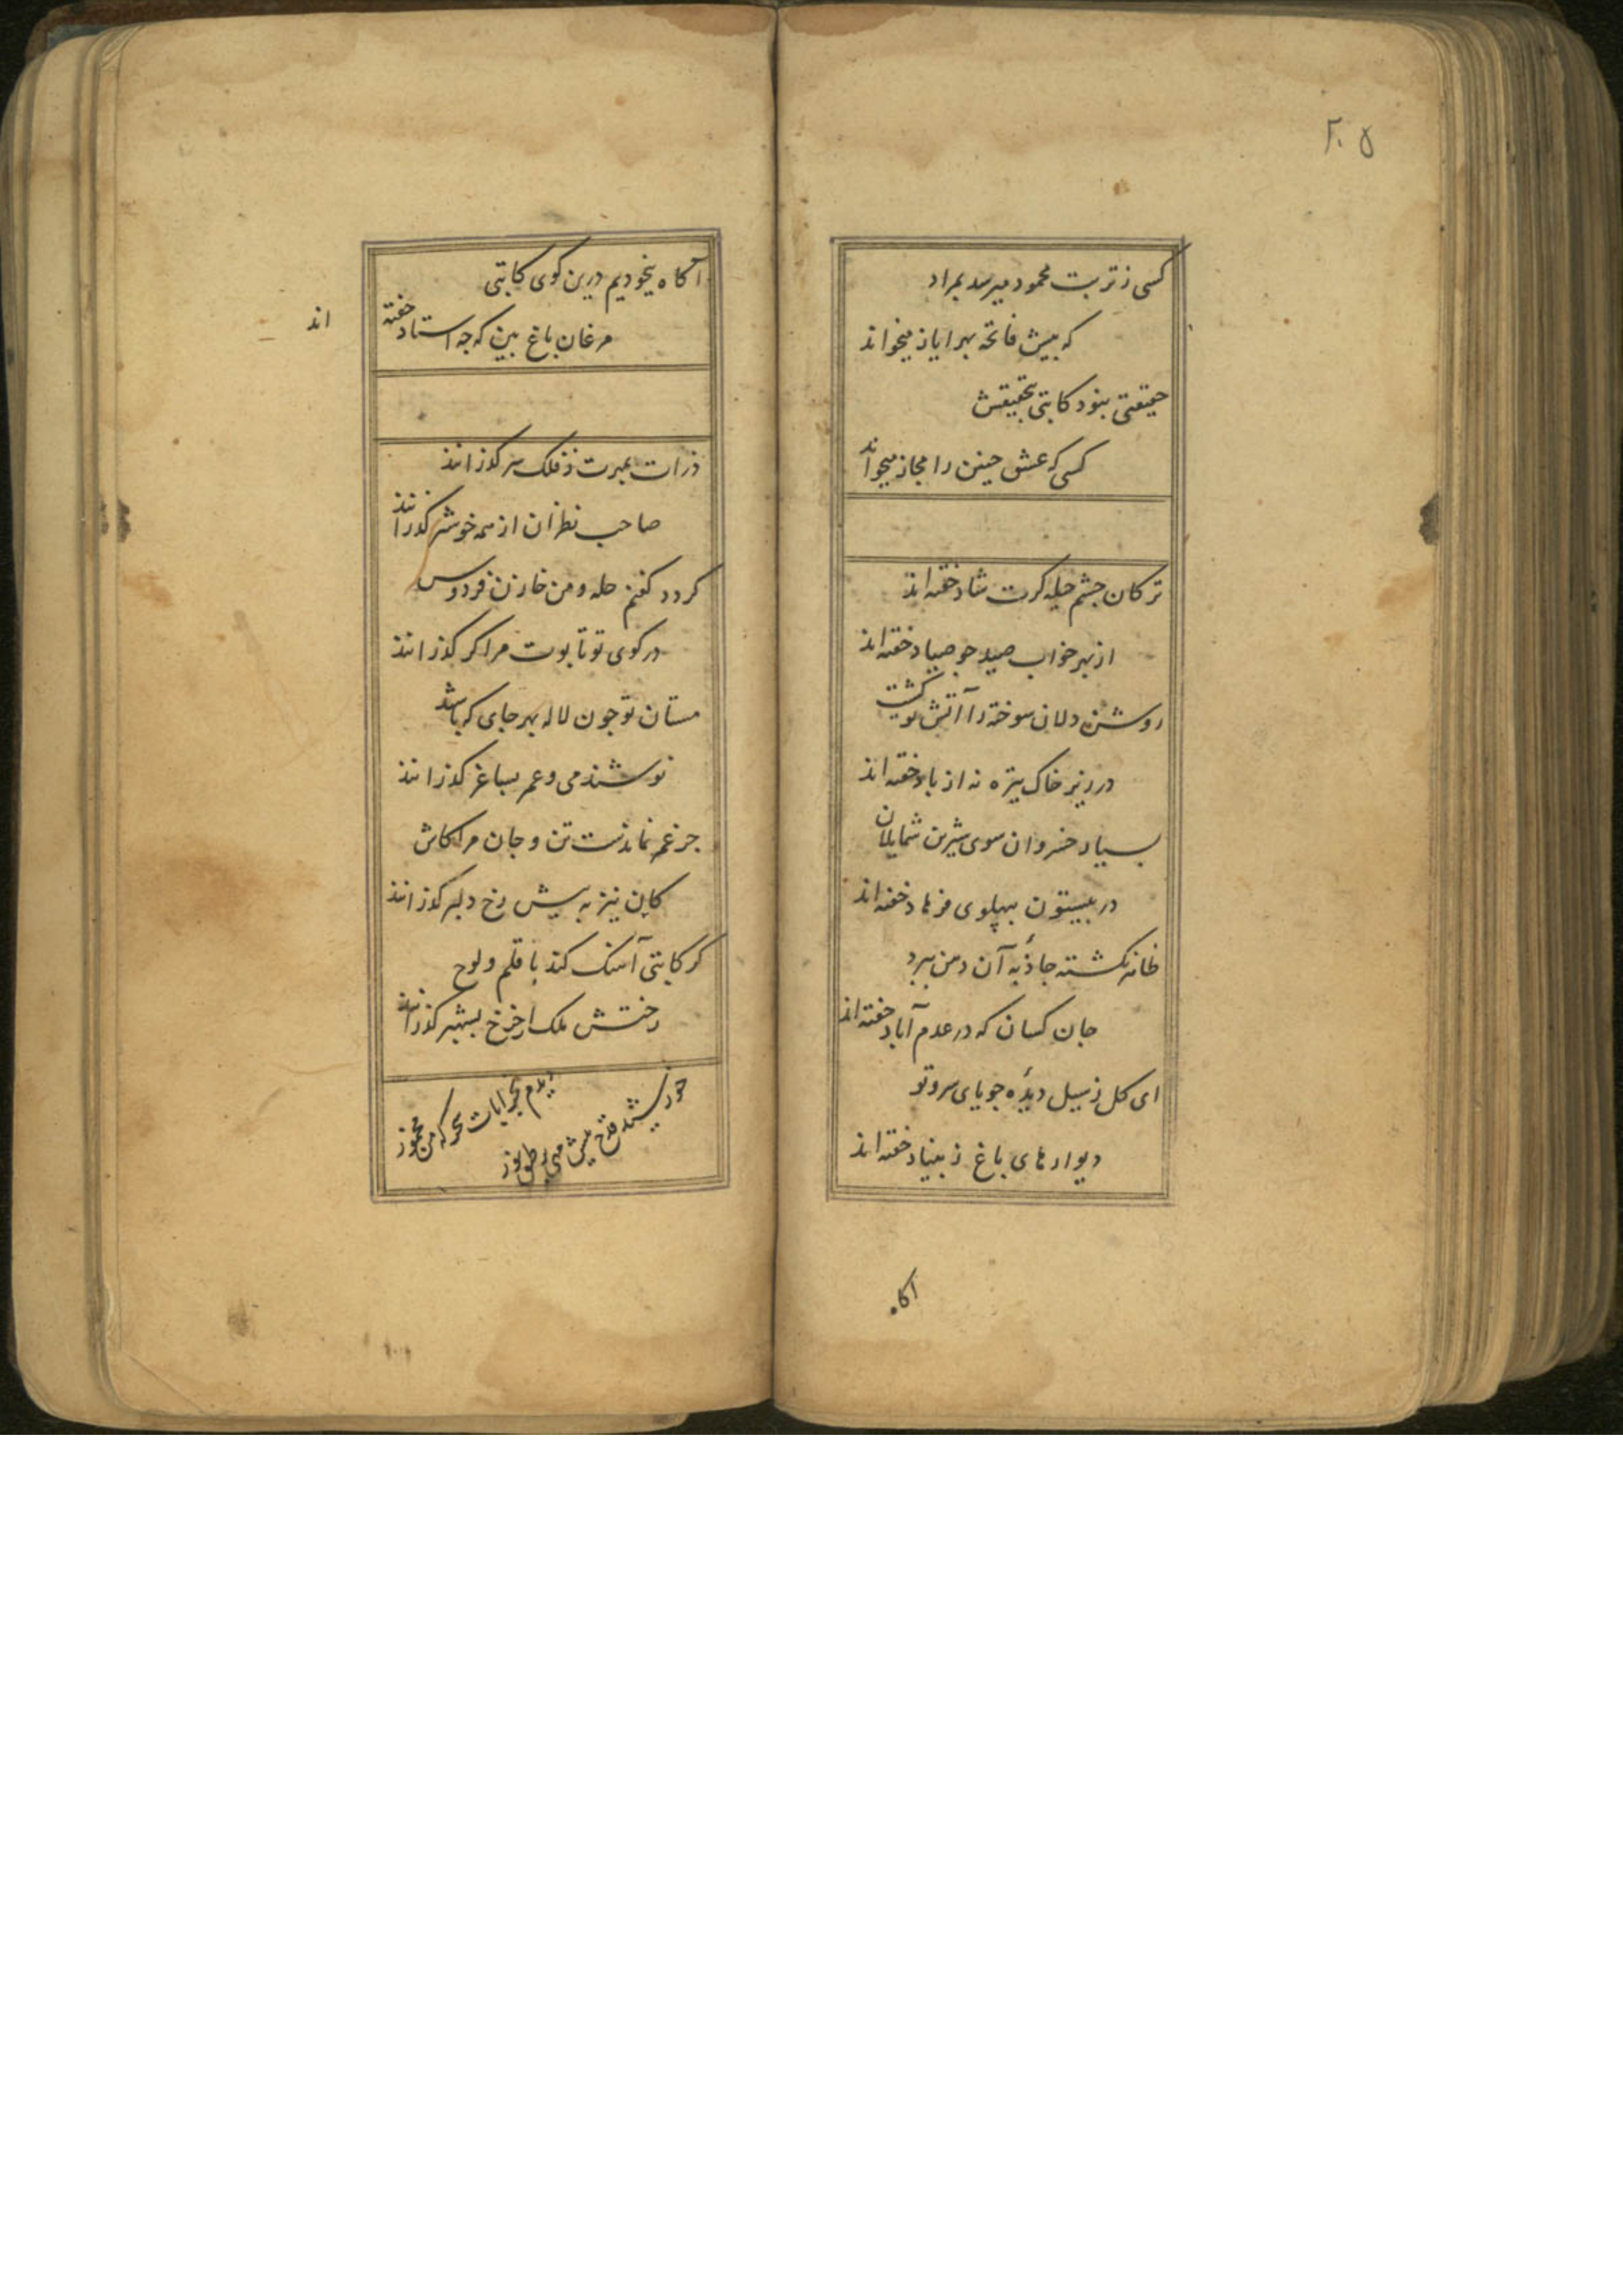 ۲۰۵
کسی ز تربت محمود میرسد بمراد
که پیش فاتحه بهر ایاز میخواند
حقیقتی بنود کاتبی بتحقیقش
کسی که عشق چنین را مجاز میخواند
ترکان چشم حیله کرت شاد خفته اند
از بهر خواب صید چو صیاد خفته اند
روشن دلان سوخته را آتش تو کشت
در زیر خاک تیره نه از باد خفته اند
بسیار خسروان سوی شیرین شمایلان
در بیستون بپهلوی فرهاد خفته اند
نکشته جاذبه آن دهن ببرد
جان کسان که در عدم آباد خفته اند
ای کل ز سیل دیده جویای سرو تو
دیوارهای باغ ز بنیاد خفته اند
آکاه
آکاه بیخودیم درین کوی کاتبی
مرغان باغ بین که چه استاد خفته اند
ذرات بمهرت ز فلک سر کذرانند
صاحب نظران از همه خوشتر کذرانند
کردد کفنم حله و من خازن فردوس
در کوی تو تابوت مرا کر کذرانند
مستان تو چون لاله بهر جای که باشند
نوشند می و عمر بساغر کذرانند
جز غم نماندست تن و جان مرا کاش
کاین نیز به پیش رخ دلبر کذرانند
کر کاتبی آهنک کند با قلم و لوح
رختش ملک از چرخ بشهپر کذرانند
دیدم بخرابات سحرکه من مخمور
خورشید قدح پیش مهی بر طبق نور